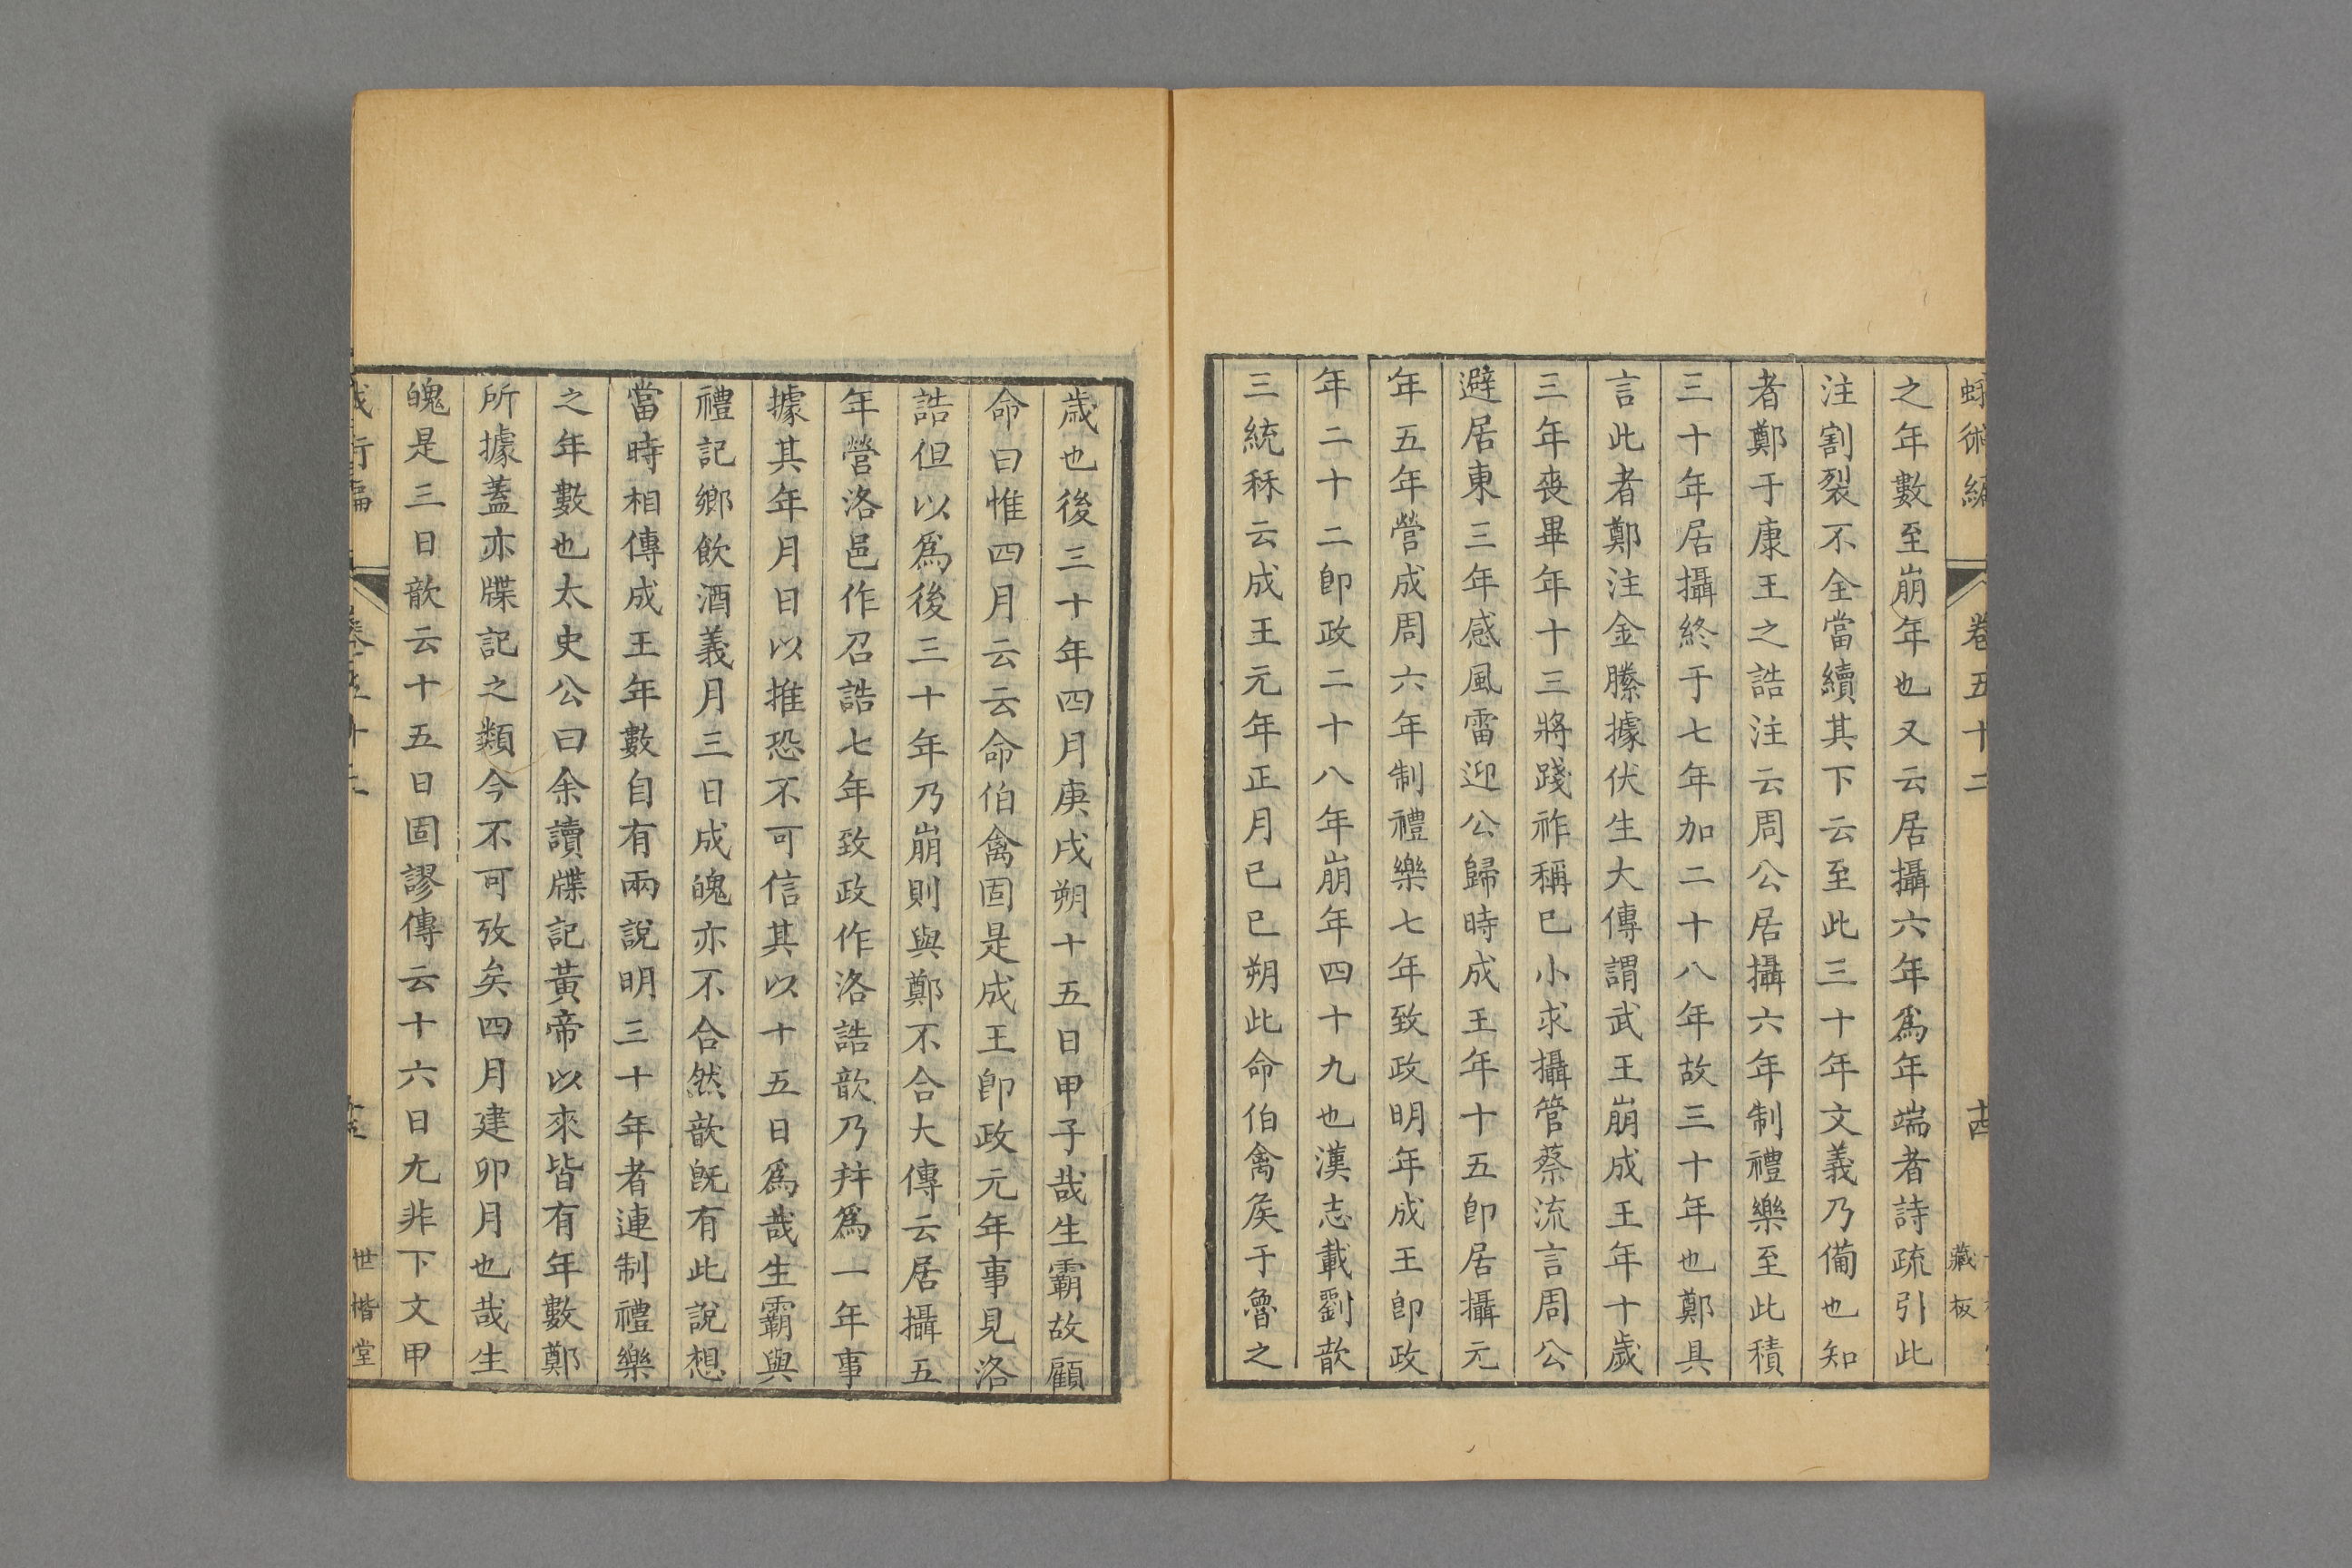 蛾術編 卷五十二 藏板
之年數至崩年也又云居攝六年爲年端者詩疏引此
注割裂不全當續其下云至此三十年文義乃備也知
者鄭于康王之誥注云周公居攝六年制禮樂至此積
三十年居攝終于七年加二十八年故三十年也鄭具
言此者鄭注金縢據伏生大傳謂武王崩成王年十歲
三年喪畢年十三將踐祚稱巳小求攝管蔡流言周公
避居東三年感風雷迎公歸時成王年十五卽居攝元
年五年營成周六年制禮樂七年致政明年成王卽政
年二十二卽政二十八年崩年四十九也漢志載劉歆
三統秝云成王元年正月己巳朔此命伯禽矦于魯之
歲也後三十年四月庚戌朔十五日甲子哉生霸故顧
命曰惟四月云云命伯禽固是成王卽政元年事見洛
誥但以爲後三十年乃崩則與鄭不合大傳云居攝五
年營洛邑作召誥七年致政作洛誥歆乃幷爲一年事
據其年月日以推恐不可信其以十五日爲哉生霸與
禮記鄉飲酒義月三日成魄亦不合然歆旣有此說想
當時相傳成王年數自有兩說明三十年者連制禮樂
之年數也太史公曰余讀牒記黃帝以來皆有年數鄭
所據蓋亦牒記之類今不可攷矣四月建卯月也哉生
魄是三日歆云十五日固謬傳云十六日尤非下文甲
世楷堂